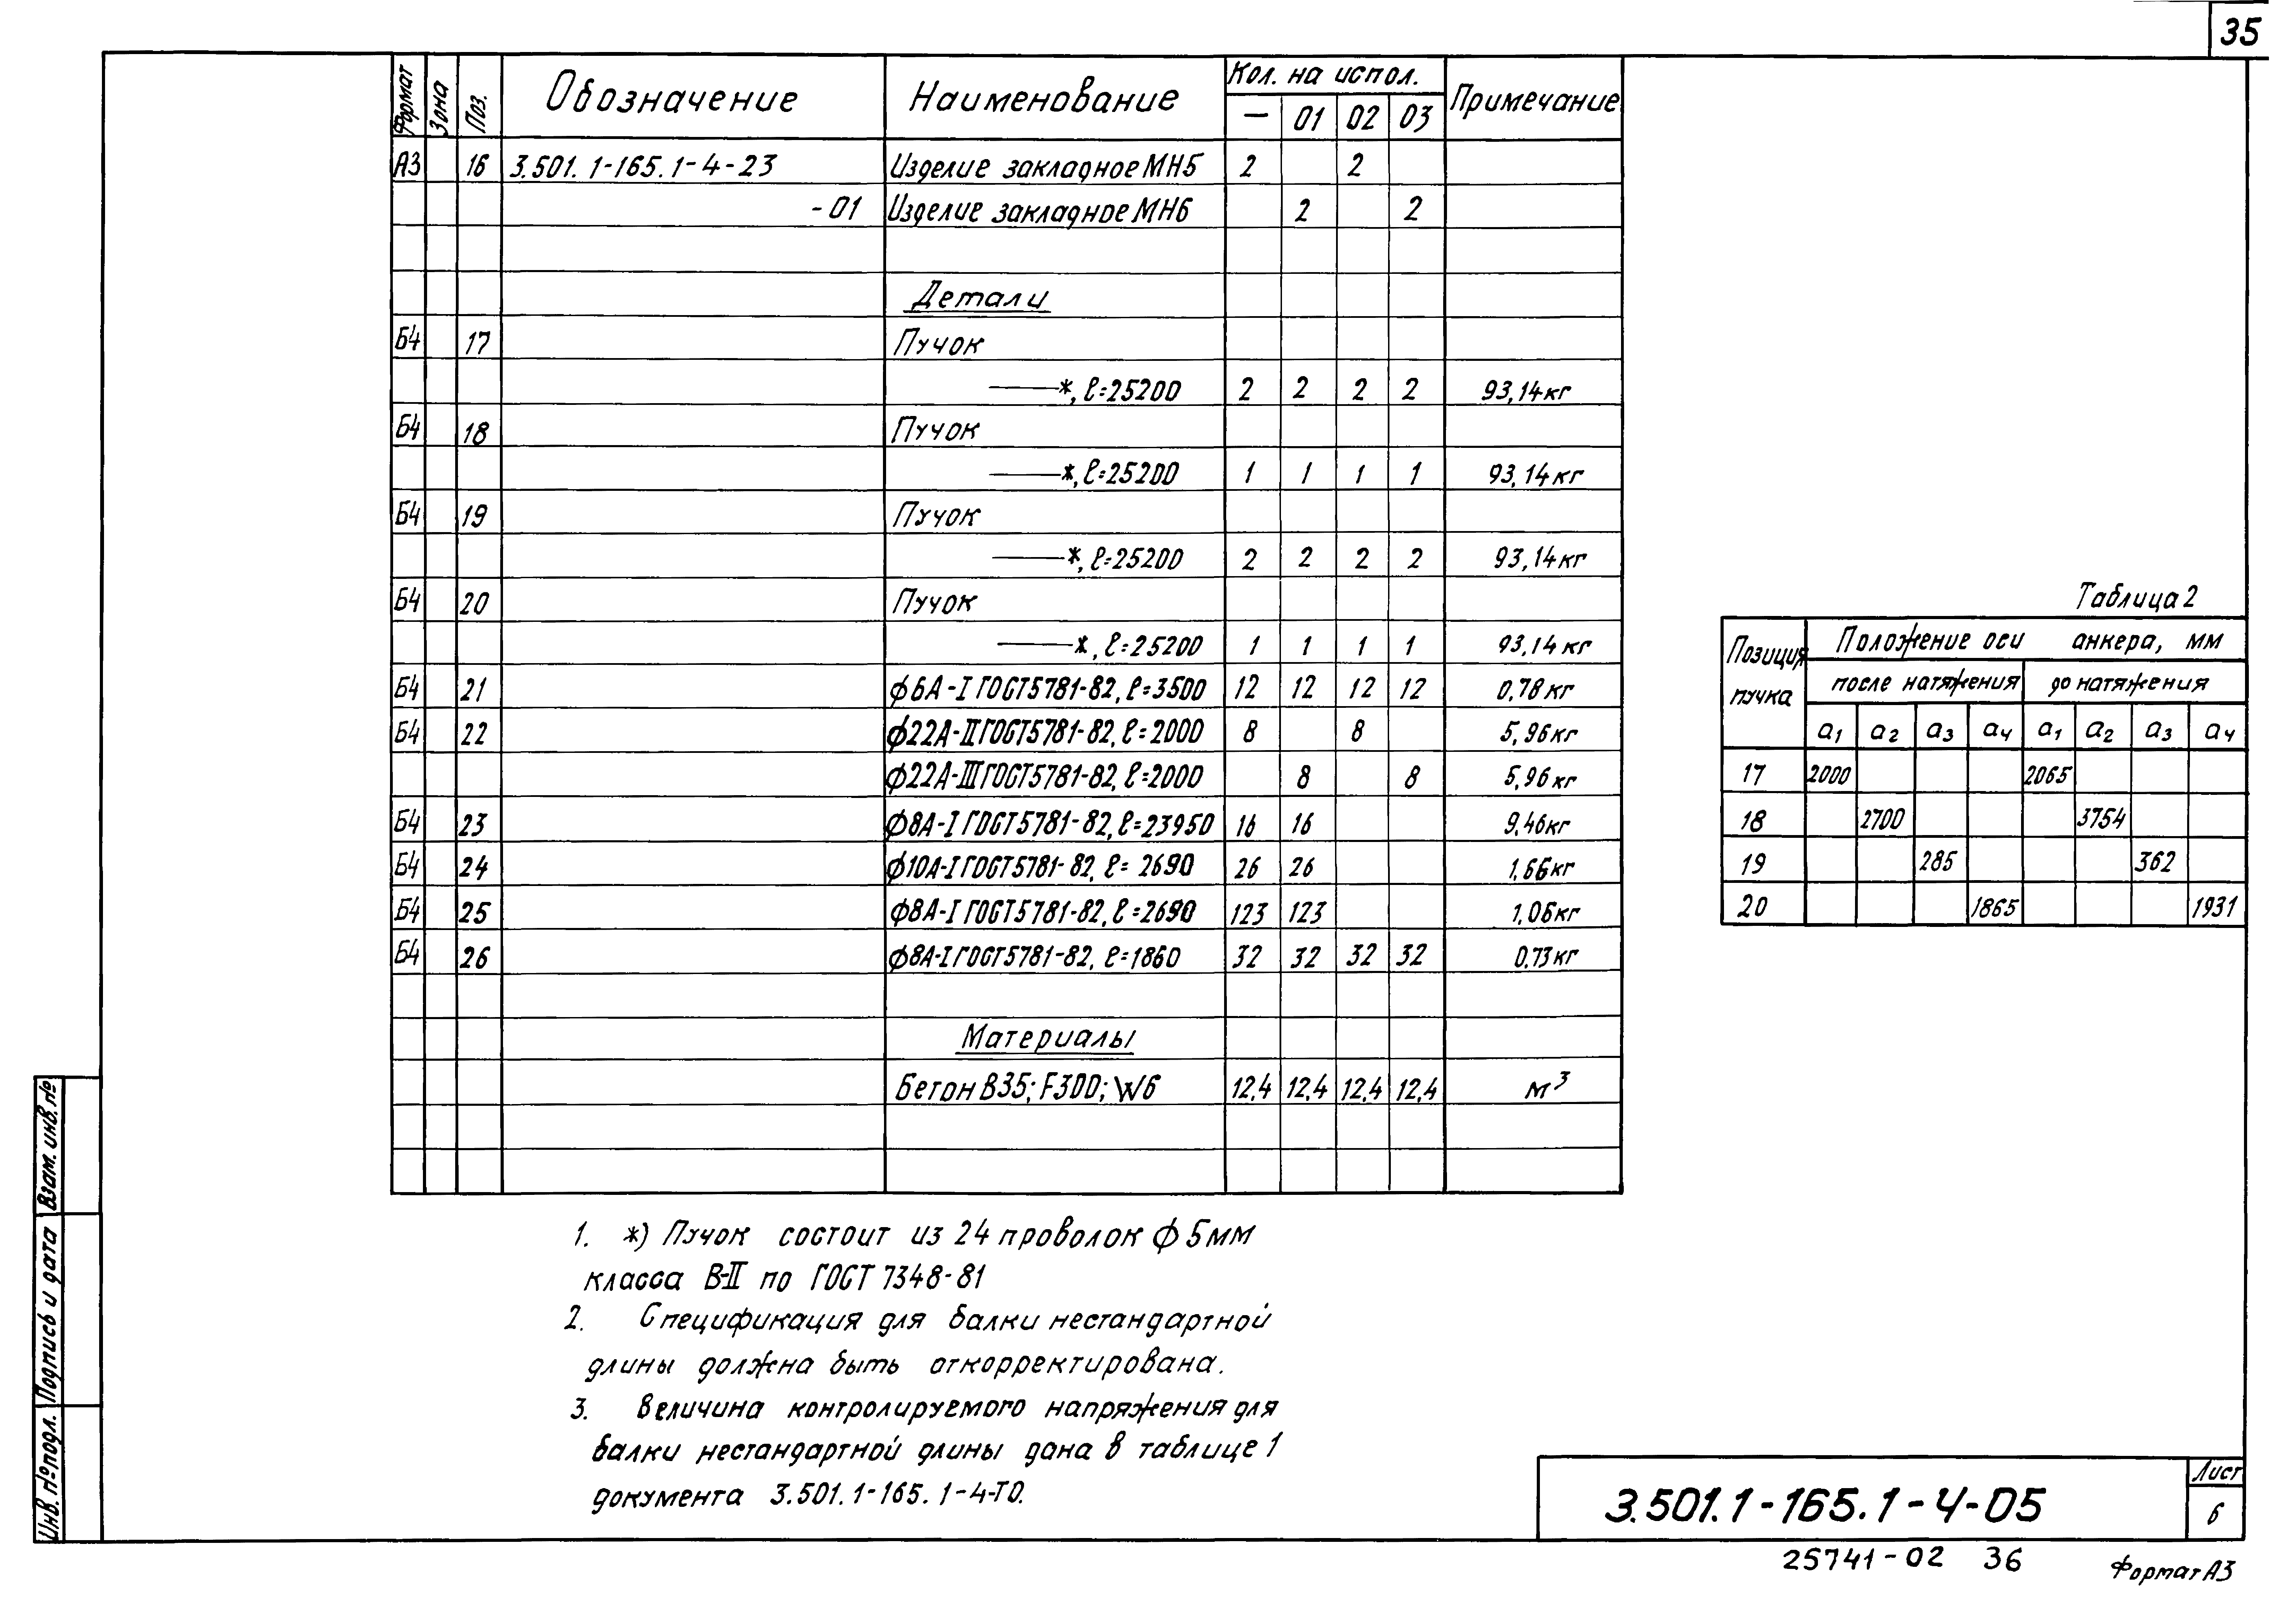 35
Формат Зона Поз. Обозначение Наименование Кол. на испол. Примечание
— 01 02 03
А3 16 3.501.1-165.1-4-23 Изделие закладное МН5 2 2
-01 Изделие закладное МН6 2 2
Детали
Б4 17 Пучок
*, ℓ=25200 2 2 2 2 93,14кг
Б4 18 Пучок
*, ℓ=25200 1 1 1 1 93,14кг
Б4 19 Пучок
*, ℓ=25200 2 2 2 2 93,14кг
Б4 20 Пучок
*, ℓ=25200 1 1 1 1 93,14кг
Б4 21 ф6А-I ГОСТ5781-82, ℓ=3500 12 12 12 12 0,78кг
Б4 22 ф22А-II ГОСТ5781-82, ℓ=2000 8 8 5,96кг
ф22А-III ГОСТ5781-82, ℓ=2000 8 8 5,96кг
Б4 23 ф8А-I ГОСТ5781-82, ℓ=23950 16 16 9,46кг
Б4 24 ф10А-I ГОСТ5781-82, ℓ=2690 26 26 1,66кг
Б4 25 ф8А-I ГОСТ5781-82, ℓ=2690 123 123 1,06кг
Б4 26 ф8А-I ГОСТ5781-82, ℓ=1860 32 32 32 32 0,73кг
Материалы
Бетон В35; F300; W6 12,4 12,4 12,4 12,4 м³
Таблица 2
Позиция пучка Положение оси анкера, мм
после натяжения до натяжения
а1 а2 а3 а4 а1 а2 а3 а4
17 2000 2065
18 2700 3754
19 285 362
20 1865 1931
1. *) Пучок состоит из 24 проволок ф 5мм
класса В-II по ГОСТ 7348-81
2. Спецификация для балки нестандартной
длины должна быть откорректирована.
3. Величина контролируемого напряжения для
балки нестандартной длины дана в таблице 1
документа 3.501.1-165.1-4-ТО.
Инв. № подл. Подпись и дата Взам. инв. №
3.501.1-165.1-4-05
Лист
6
25741-02 36
Формат А3